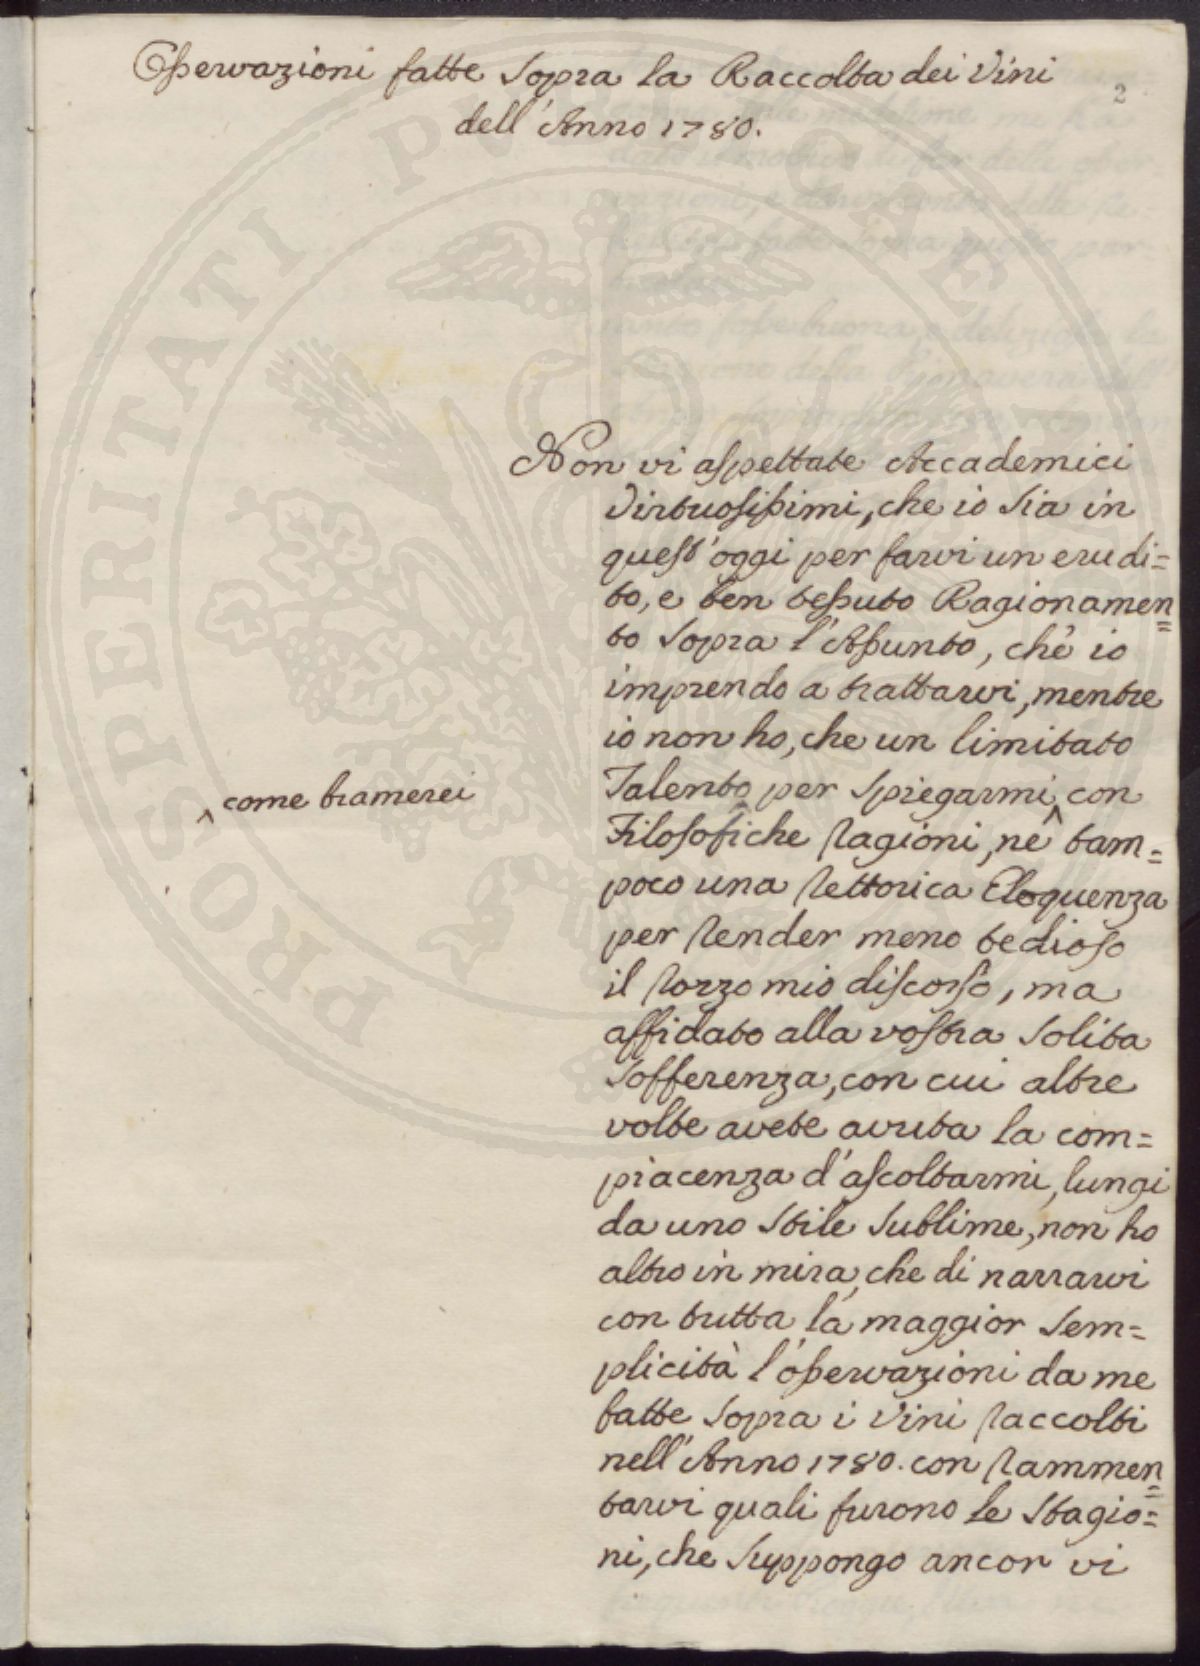 Osservazioni fatte sopra la Raccolta dei Vini
2
dell'Anno 1780.
Non vi aspettate Accademici
Virtuosissimi, che io sia in
quest'oggi per farvi un erudi=
to, e ben tessuto Ragionamen=
to sopra l'Assunto, che io
imprendo a trattarvi, mentre
io non ho, che un limitato
Talento per spiegarmi ^ con
^ come bramerei
Filosofiche ragioni, nè tam=
poco una rettorica Eloquenza
per render meno tedioso
il rozzo mio discorso, ma
affidato alla vostra solita
sofferenza, con cui altre
volte avete avuta la com=
piacenza d'ascoltarmi, lungi
da uno stile sublime, non ho
altro in mira, che di narrarvi
con tutta la maggior sem=
plicità l'osservazioni da me
fatte sopra i Vini raccolti
nell'Anno 1780. con rammen=
tarvi quali furono le Stagio=
ni, che suppongo ancor vi
PROSPERITATI PUBLICAE